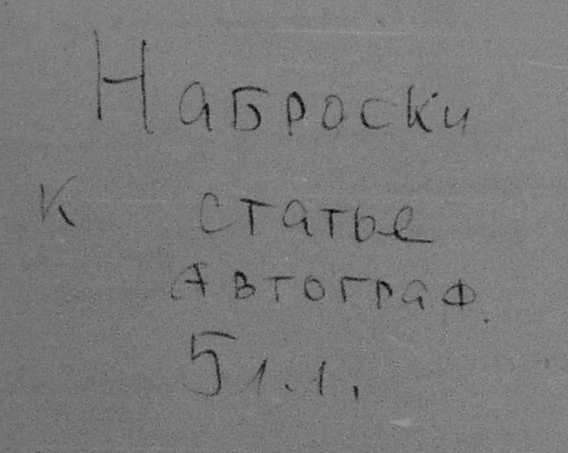 Наброски
к статье
Автограф.
51.1.